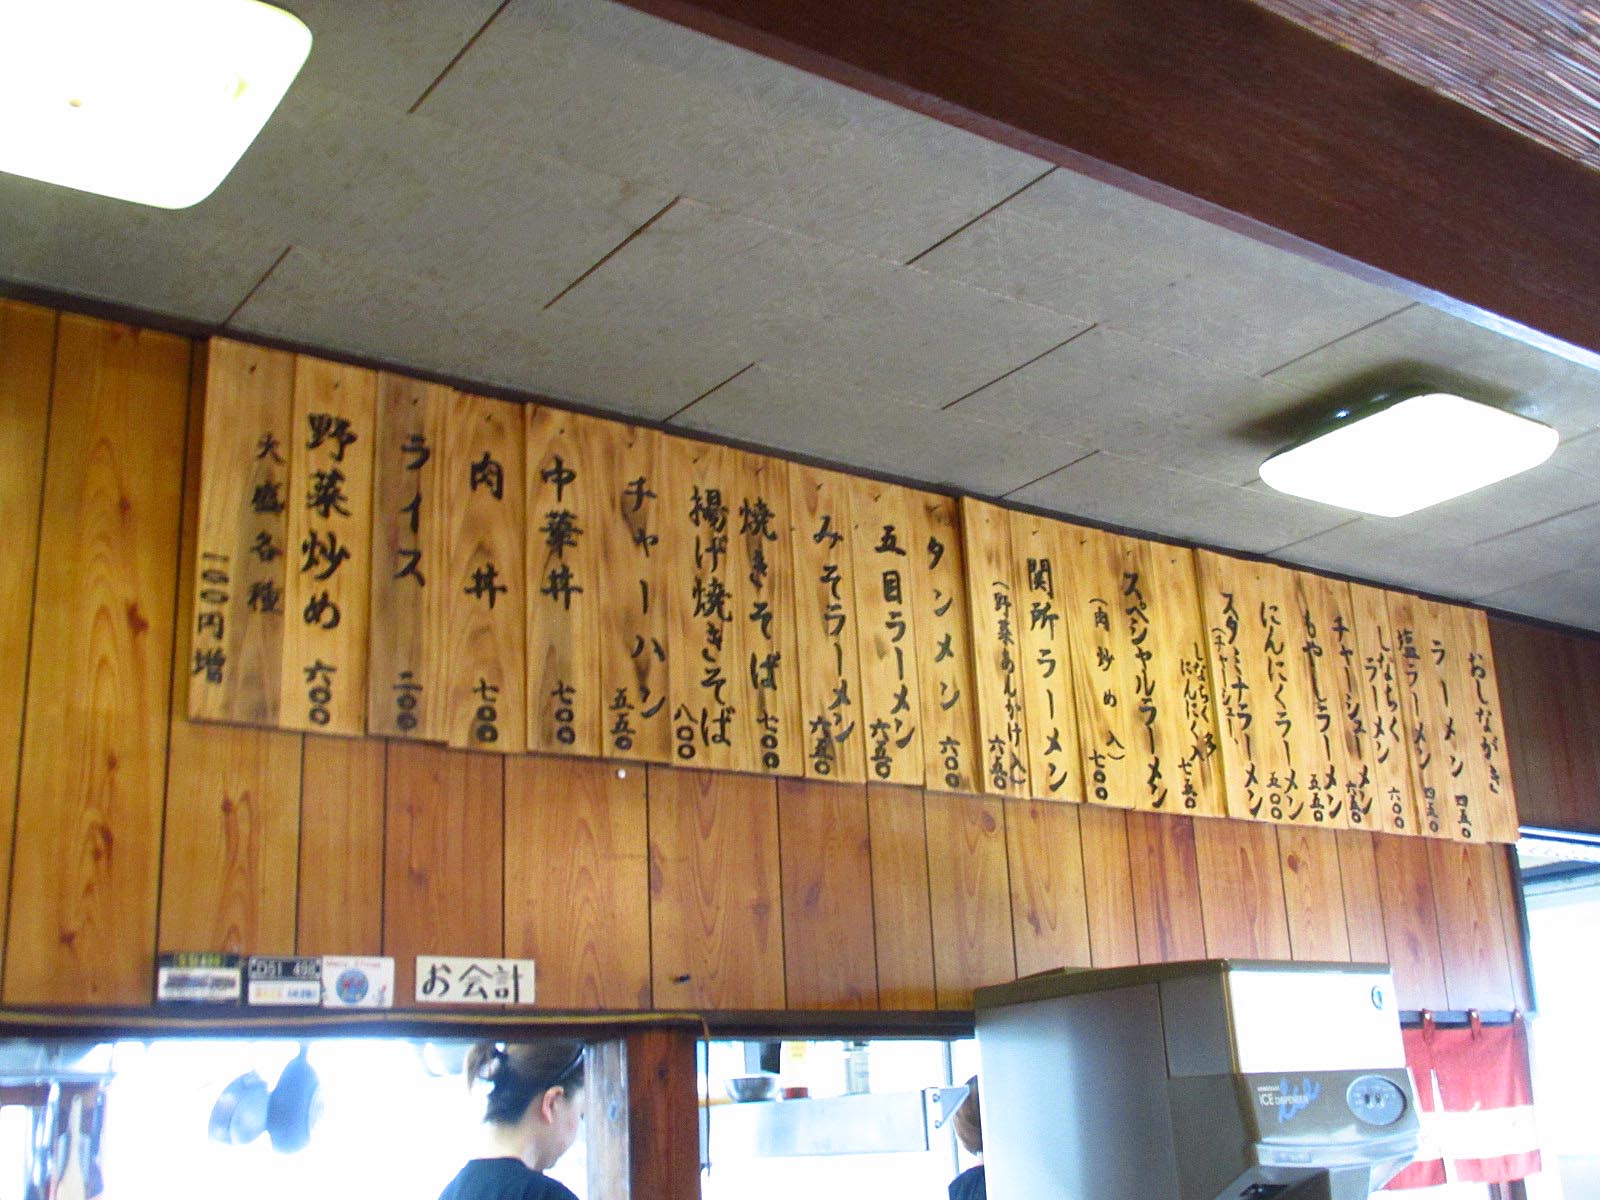 おしながき
ラーメン 四五〇
塩ラーメン 四五〇
しなちくラーメン 六〇〇
チャーシューメン 六五〇
もやしラーメン 五五〇
にんにくラーメン 五〇〇
スタミナラーメン
(チャーシュー、
しなちく
にんにく入) 七五〇
スペシャルラーメン
(肉炒め入) 七〇〇
関所ラーメン
(野菜あんかけ入) 六五〇
タンメン 六〇〇
五目ラーメン 六五〇
みそラーメン 六五〇
焼きそば 七〇〇
揚げ焼きそば 八〇〇
チャーハン 五五〇
中華丼 七〇〇
肉丼 七〇〇
ライス 二〇〇
野菜炒め 六〇〇
大盛各種
一〇〇円増
お会計
ICE DISPENSER